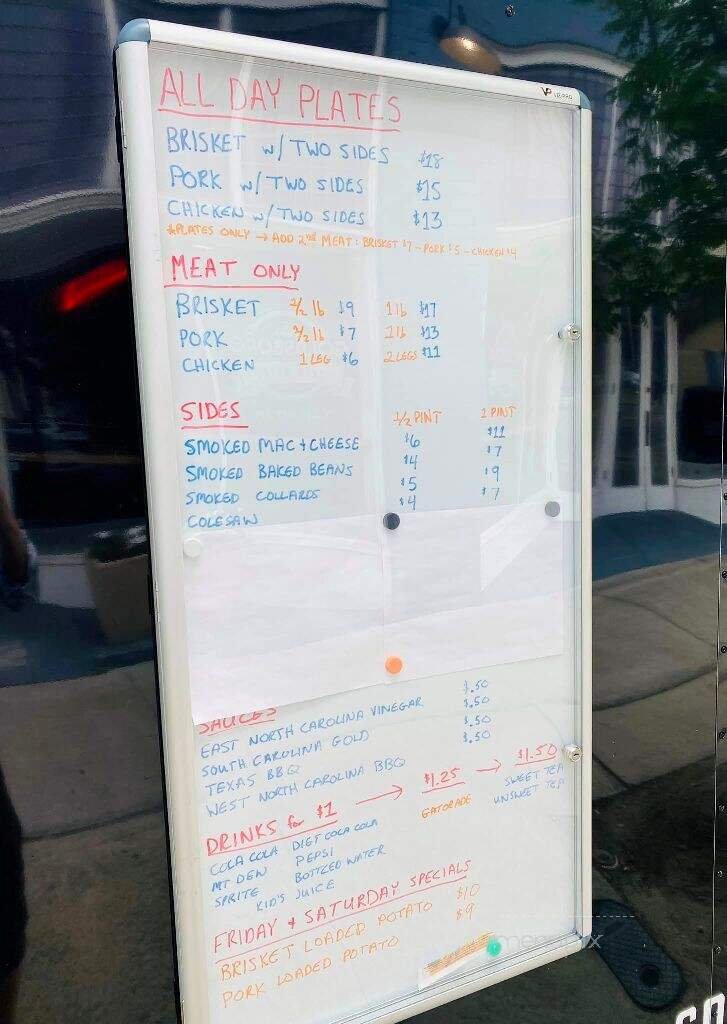 ALL DAY PLATES
BRISKET w/ TWO SIDES $18
PORK w/ TWO SIDES $15
CHICKEN w/ TWO SIDES $13
*PLATES ONLY → ADD 2nd MEAT: BRISKET $7 - PORK $5 - CHICKEN $4
MEAT ONLY
BRISKET 1/2 lb $9 1 lb $17
PORK 1/2 lb $7 1 lb $13
CHICKEN 1 LEG $6 2 LEGS $11
SIDES 1/2 PINT 1 PINT
SMOKED MAC + CHEESE $6 $11
SMOKED BAKED BEANS $4 $7
SMOKED COLLARDS $5 $9
COLESAW $4 $7
SAUCES
EAST NORTH CAROLINA VINEGAR $.50
SOUTH CAROLINA GOLD $.50
TEXAS BBQ $.50
WEST NORTH CAROLINA BBQ $.50
DRINKS for $1 → $1.25 → $1.50
COLA COLA DIET COLA COLA GATORADE SWEET TEA
MT DEW PEPSI UNSWEET TEA
SPRITE BOTTLED WATER
KID'S JUICE
FRIDAY + SATURDAY SPECIALS
BRISKET LOADED POTATO $10
PORK LOADED POTATO $9